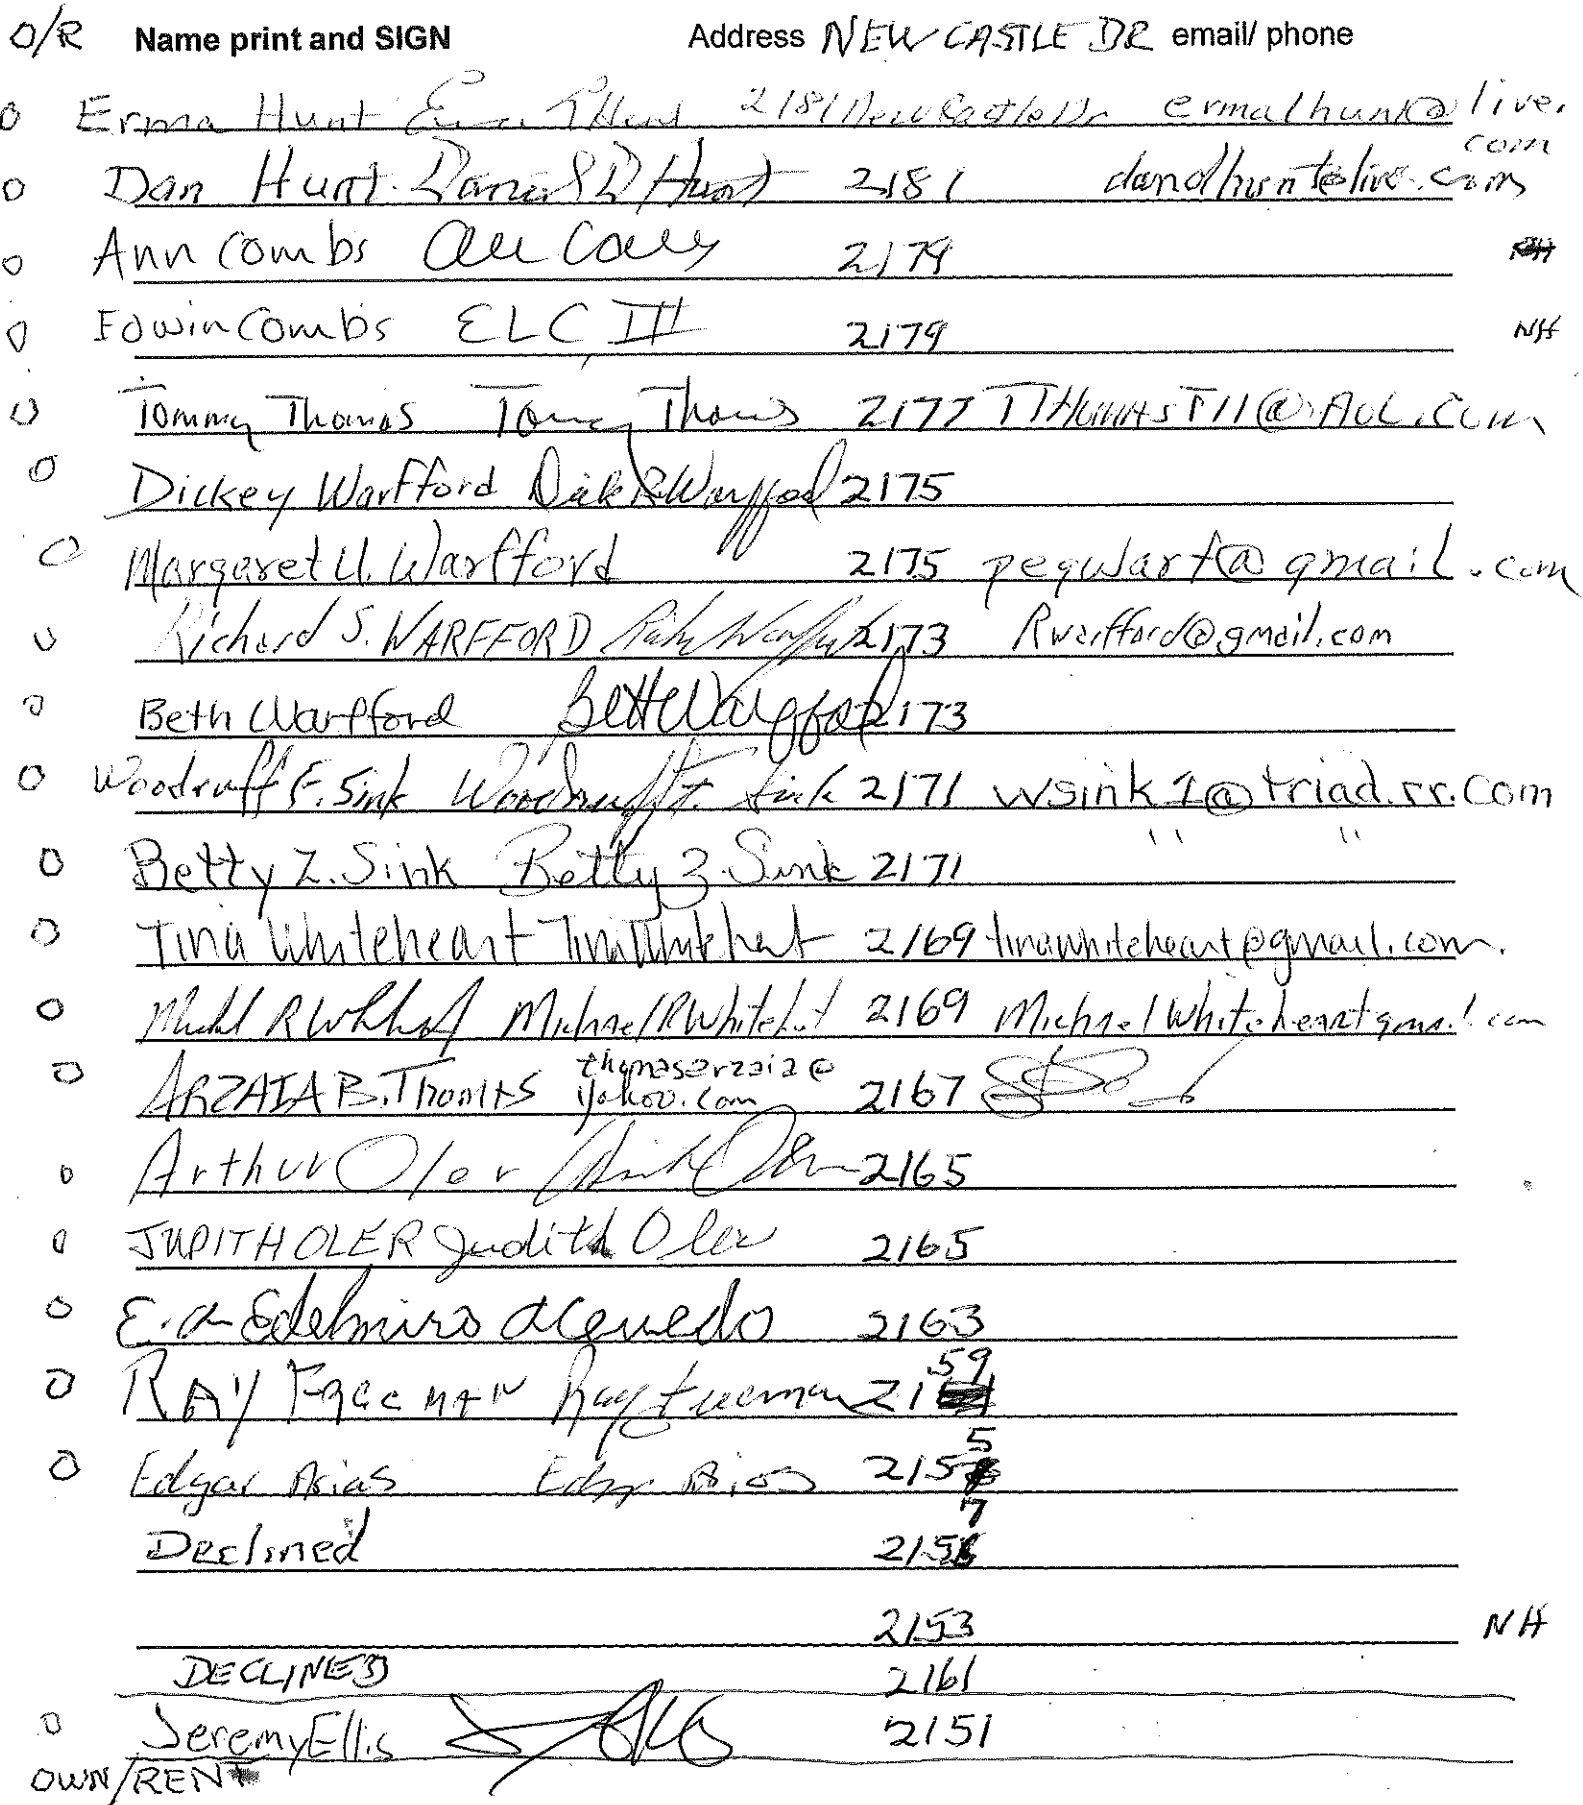 O/R Name print and SIGN Address NEW CASTLE DR email/ phone
O Erma Hunt 2181 New Castle Dr ermalhunt@live.com
O Dan Hunt Daniel D Hunt 2181 dandhunt@live.com
O Ann Combs 2179
O Edwin Combs ELC III 2179 NH
O Tommy Thomas 2177 TTHOMAST11@AOL.COM
O Dickey Warfford Dick R Warfford 2175
O Margaret U. Warfford 2175 pegwarf@gmail.com
O Richard S. WARFFORD 2173 Rwarfford@gmail.com
O Beth Warfford Beth Warfford 2173
O Woodruff F. Sink Woodruff F. Sink 2171 wsink1@triad.rr.com
O Betty Z. Sink Betty Z. Sink 2171 " "
O Tina Whiteheart Tina Whiteheart 2169 tinawhiteheart@gmail.com.
O Michael R Whiteheart 2169 MichaelWhiteheartgmail.com
O ARZAIA B. THOMAS thomasarzaia@yahoo.com 2167
O Arthur Oler 2165
O JUDITH OLER Judith Oler 2165
O E. a Edelmiro Acevedo 2163
O RAY FREEMAN Ray Freeman 2159
O Edgar Arias 2155
Declined 2157
2153 NH
DECLINED 2161
O Jeremy Ellis 2151
OWN/RENT